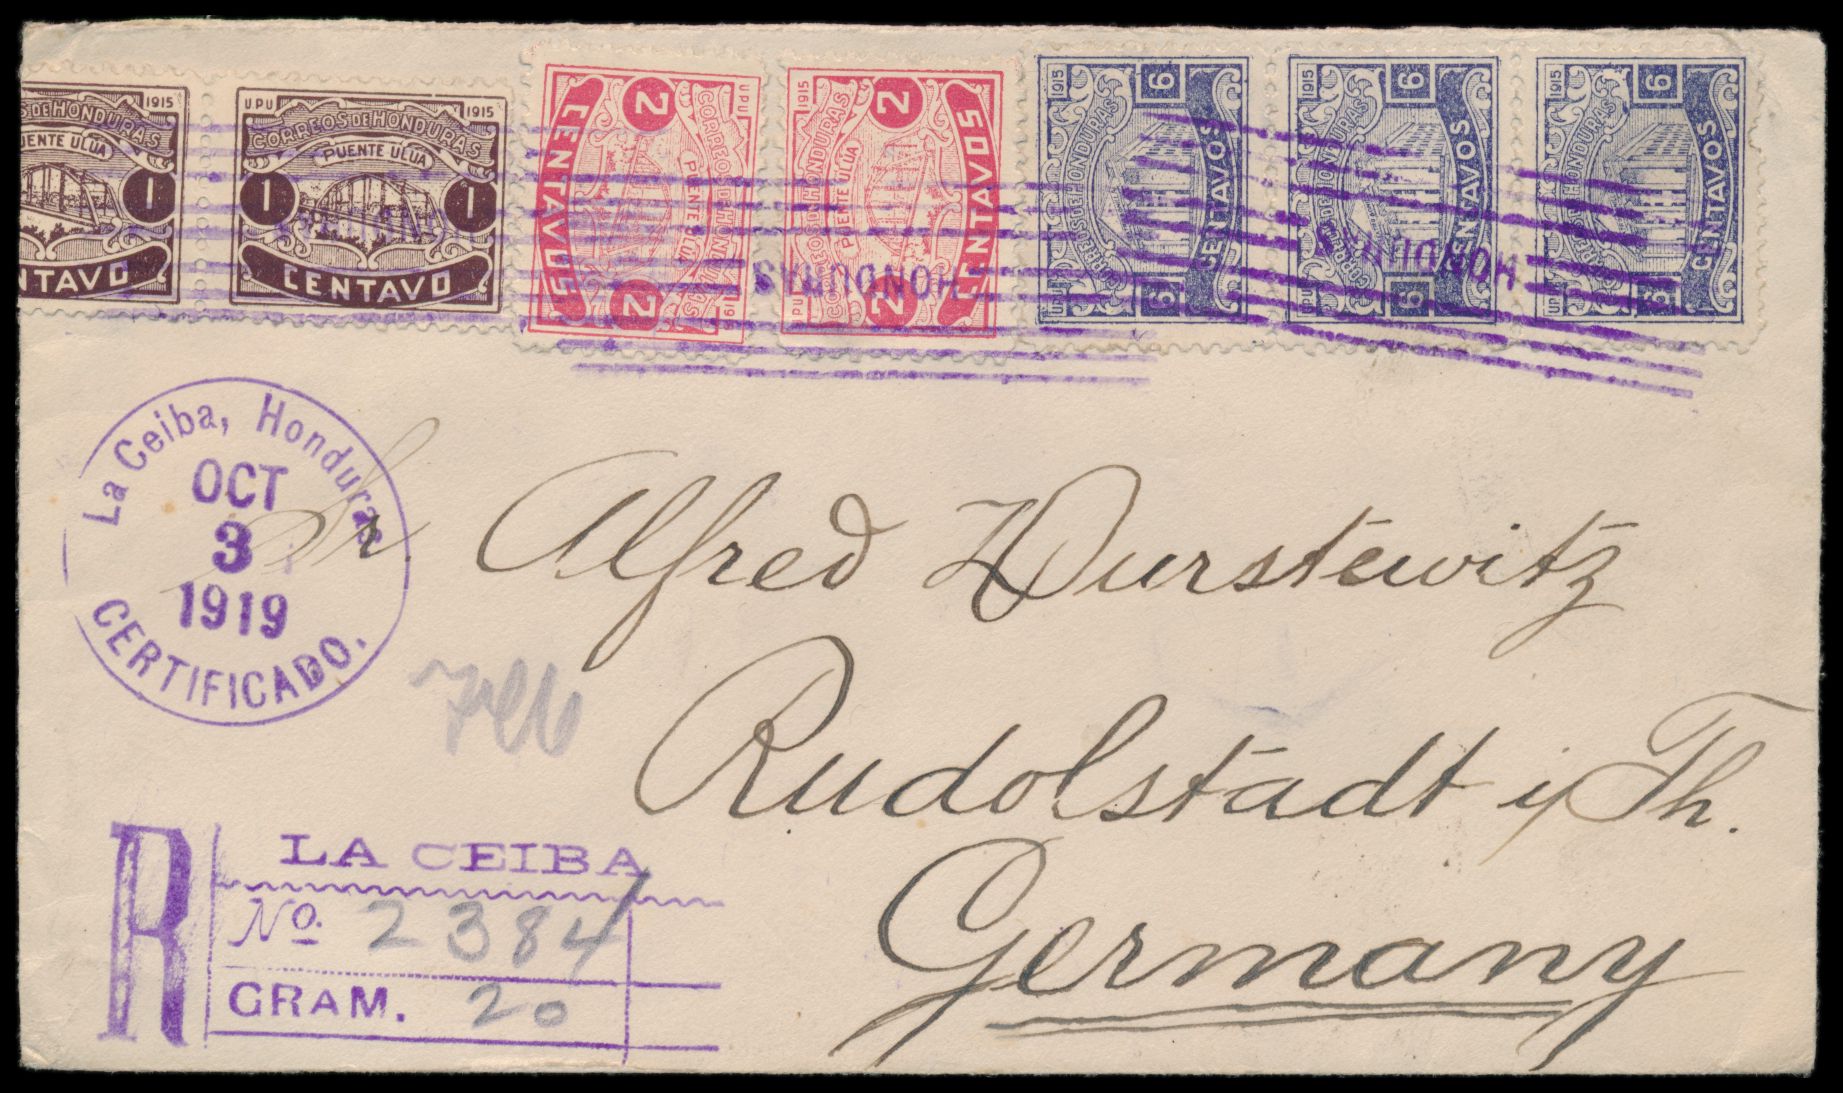 1915
CORREOS DE HONDURAS
PUENTE ULÚA
1
CENTAVO
UPU 1915
CORREOS DE HONDURAS
PUENTE ULÚA
1 1
CENTAVO
UPU 1915
CORREOS DE HONDURAS
PUENTE ULÚA
2 2
CENTAVOS
UPU 1915
CORREOS DE HONDURAS
PUENTE ULÚA
2 2
CENTAVOS
UPU 1915
CORREOS DE HONDURAS
6 6
CENTAVOS
UPU 1915
CORREOS DE HONDURAS
6 6
CENTAVOS
UPU 1915
CORREOS DE HONDURAS
6 6
CENTAVOS
HONDURAS
HONDURAS
HONDURAS
La Ceiba, Honduras
OCT
3
1919
CERTIFICADO.
Sr Alfred Wurstewitz
Rudolstadt i/Th.
Germany
R
LA CEIBA
No. 2384
GRAM. 20